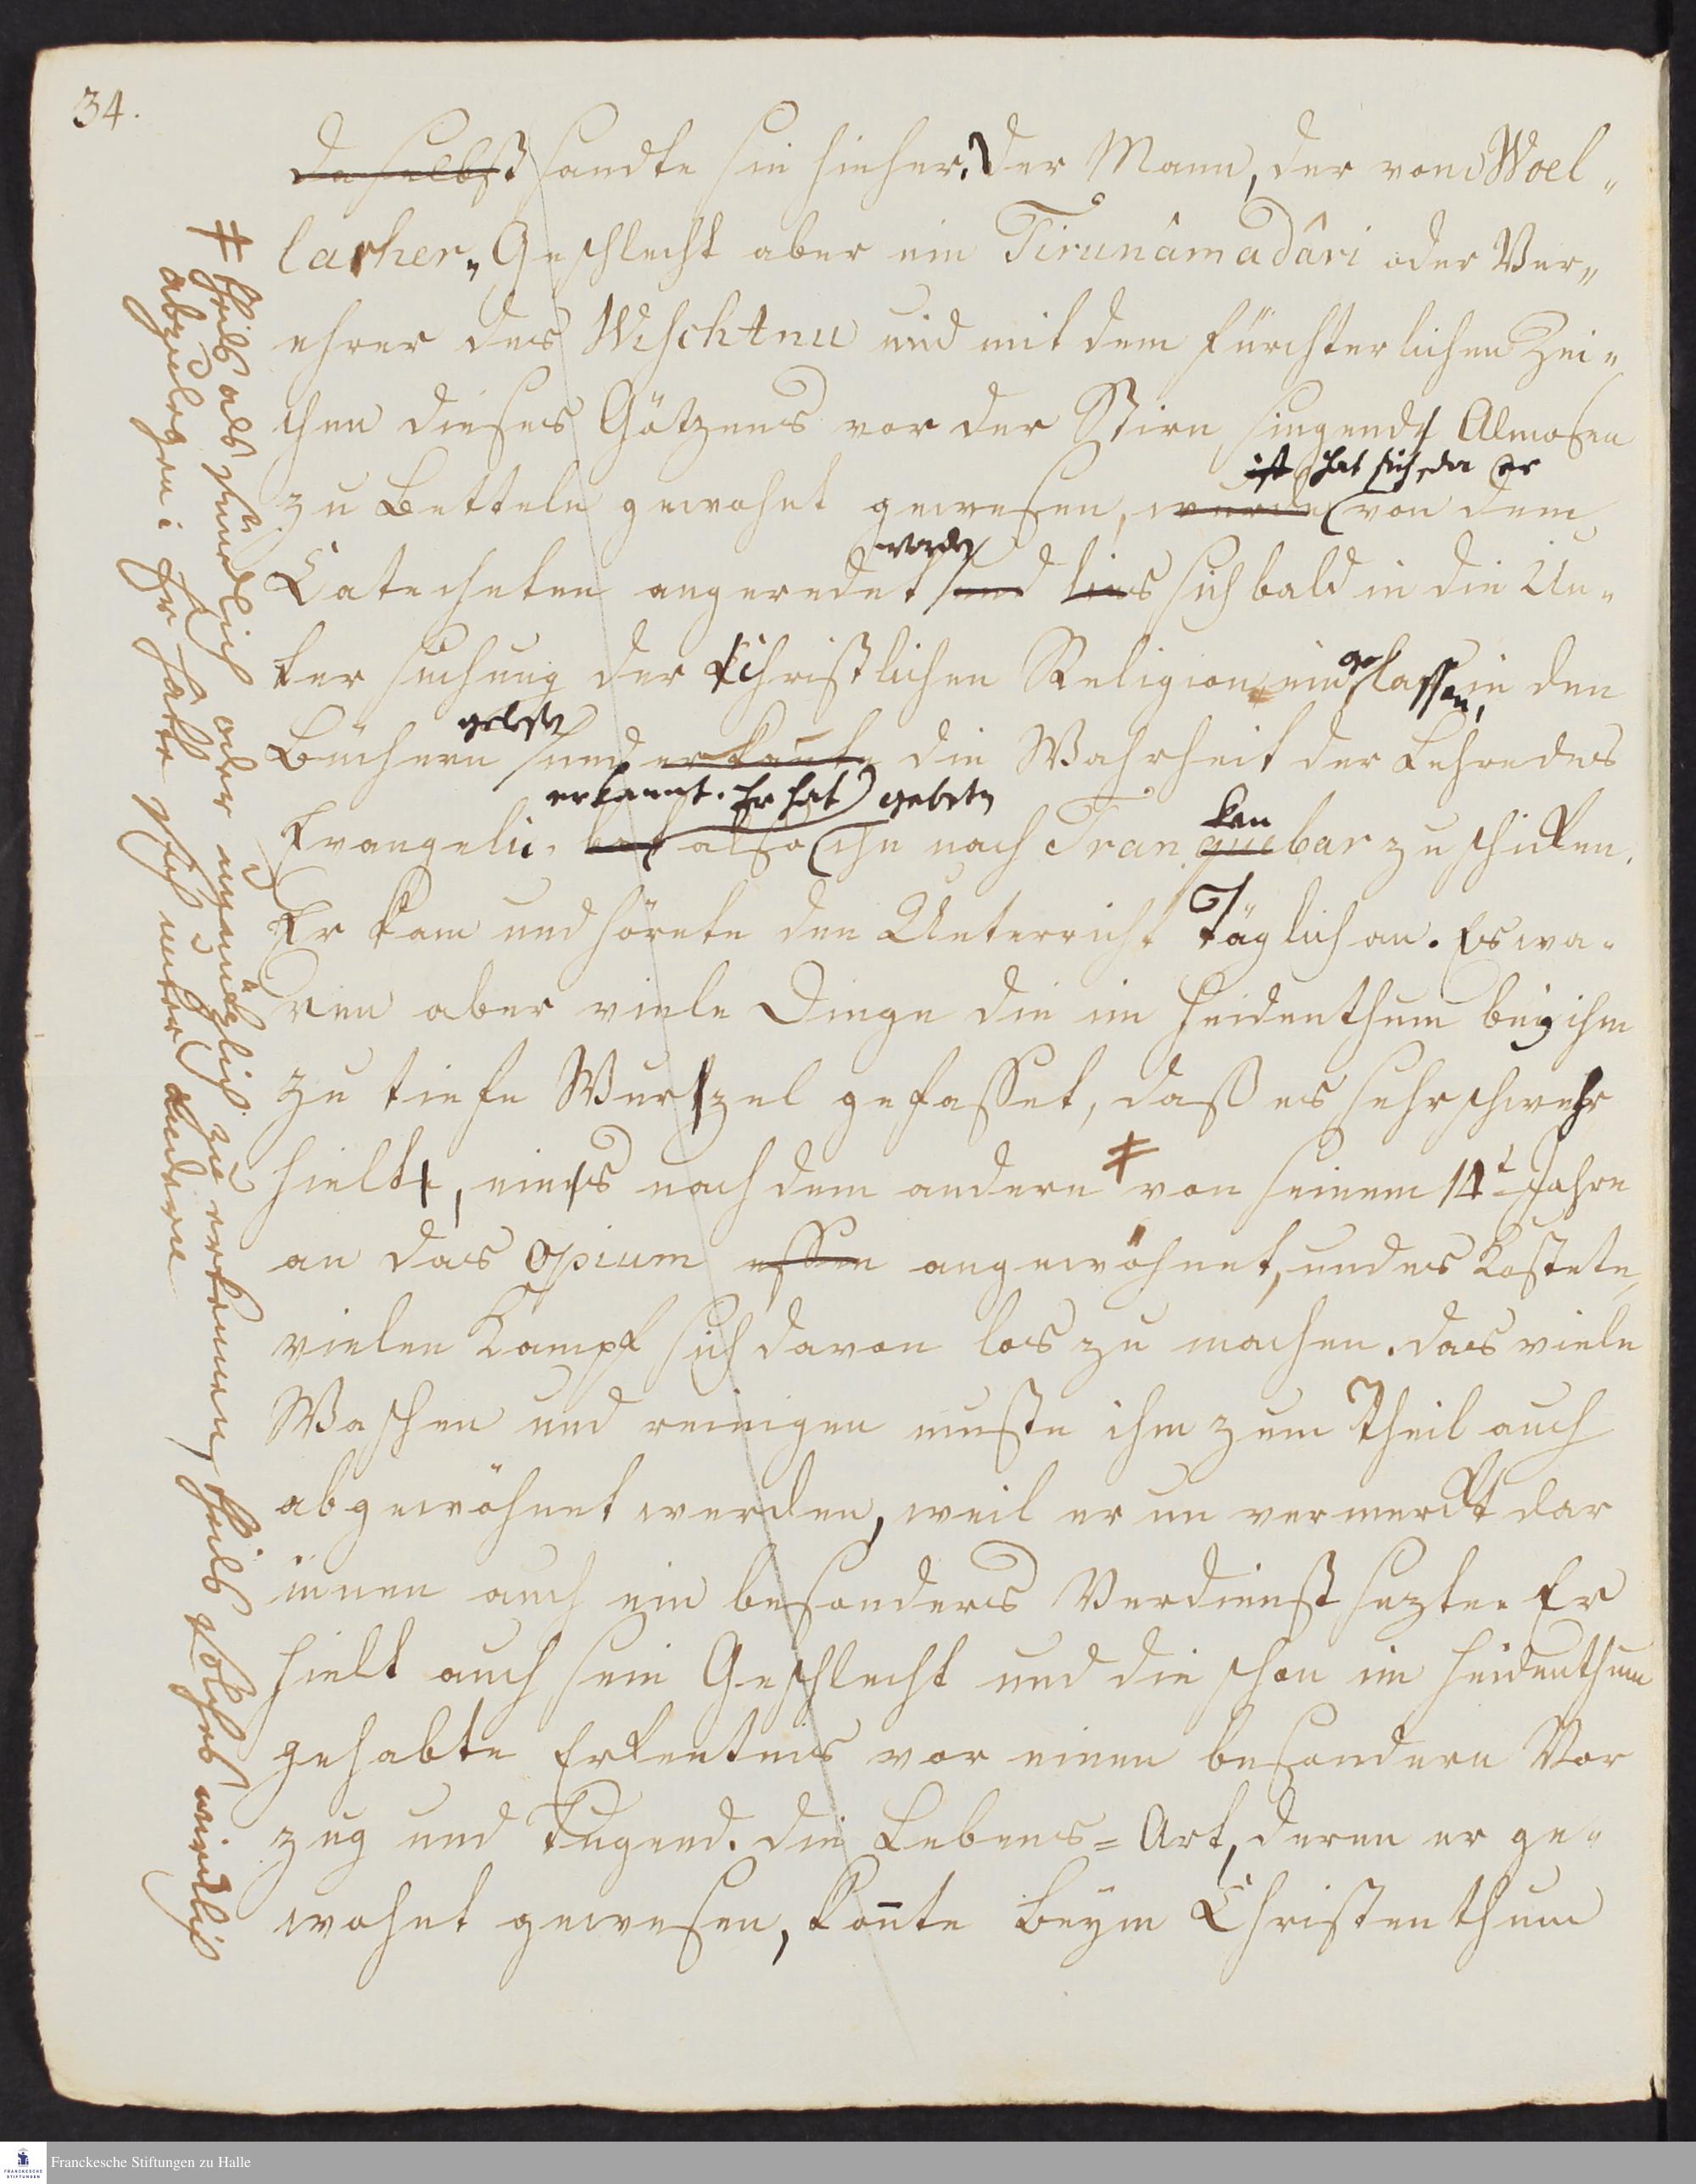 34.
daselbst sandte sie hieher. Der Mann, der vom Woel„
larher„ Geschlecht aber ein Tirunâmadâri oder Ver„
ehrer des Wischtnu und mit dem fürchterlichen Zei„
chen dieses Götzens vor der Stirn singend Almosen
ist hat sich, da er
zu Betteln gewohnt gewesen, wurde von dem
worden
Catecheten angeredet und lies sich bald in die Un„
ter suchung der Christlichen Religion ein gelassen, in den
gelesen
Büchern und erkante die Wahrheit der Lehre des
erkannt. Er hat gebeten
Evangelii. bat also ihn nach Tranquebar zu schicken.
ken
Er kam und hörete den Unterricht Täglich an. Es wa„
ren aber viele Dinge die im Heidenthum bey ihm
zu tiefe Wurtzel gefasset, daß es sehr schwehr
hielt, eines nach dem andern ǂ von seinem 14t Jahre
an das opium essen angewöhnet, und es Kostete
vielen Kampf sich davon los zu machen. das viele
Waschen und reinigen muste ihm zum Theil auch
abgewöhnet werden, weil er un vermerckt dar
innen auch ein besonders Verdienst sezte. Er
hielt auch sein Geschlecht und die schon im Heidenthum
gehabte Erkentnis vor einen besondern Vor
zug und Tugend. die Lebens=Art, deren er ge„
wohnt gewesen, konte beym Christenthum
ǂ theils als sündlich oder unnützlich zu erkennen, theils solches wircklich
abzulegen: Er hatte sich unter andern
Franckesche Stiftungen zu Halle